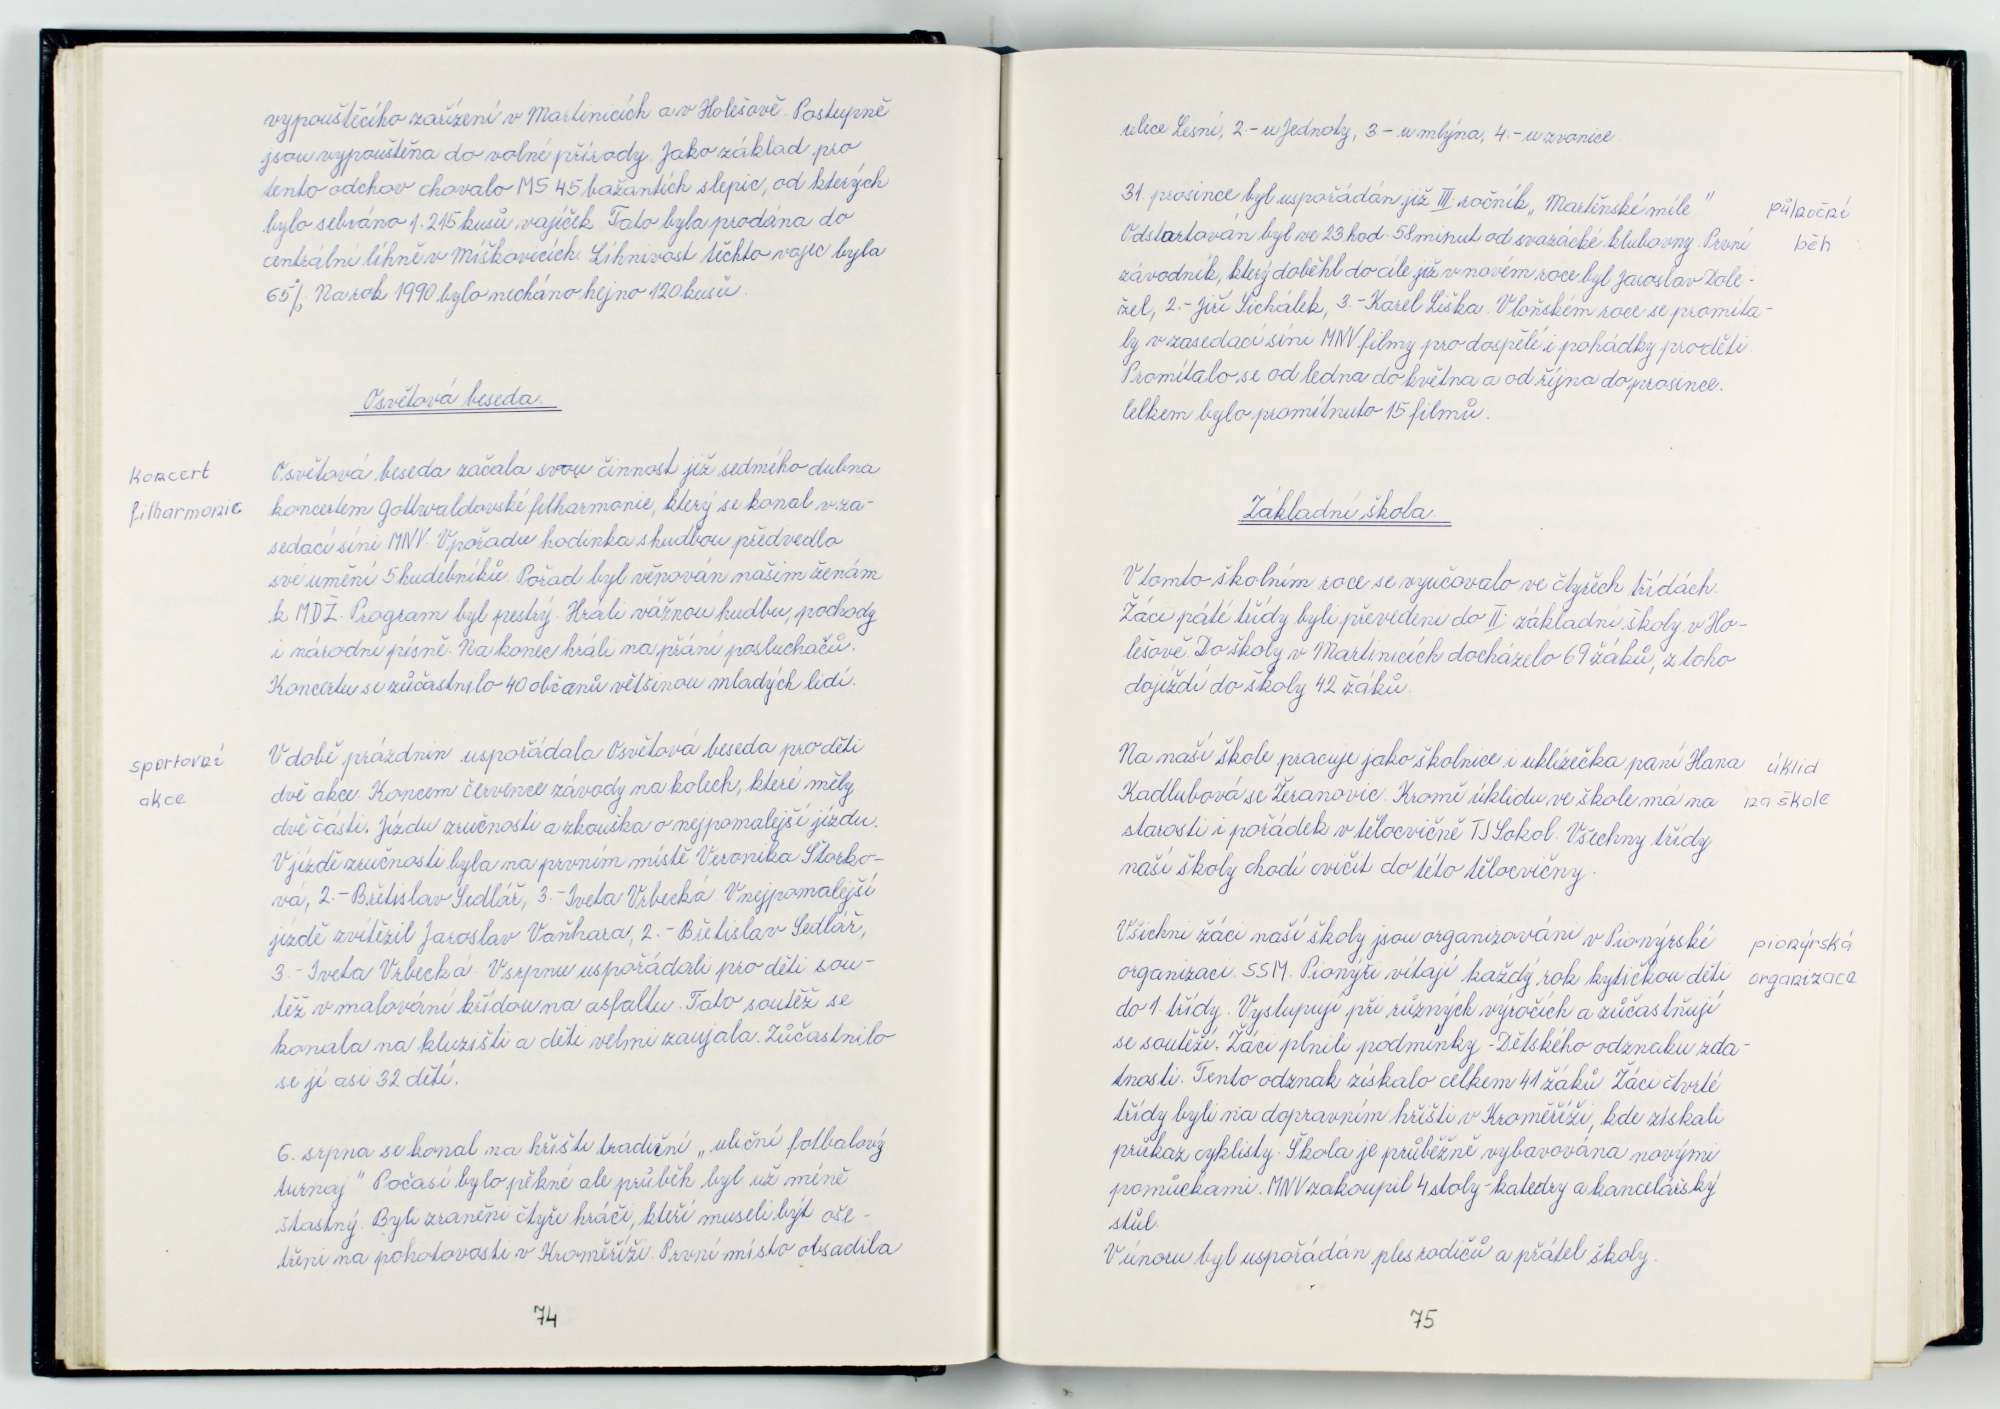 vypouštěcího zařízení v Martinicích a v Holešově. Postupně
jsou vypouštěna do volné přírody. Jako základ pro
tento odchov chovalo MS 45 bažantích slepic, od kterých
bylo sebráno 1.215 kusů vajíček. Tato byla prodána do
centrální líhně v Míškovicích. Líhnivost těchto vajec byla
65%. Na rok 1990 bylo necháno hejno 120 kusů.
Osvětová beseda.
koncert
filharmonie
Osvětová beseda začala svou činnost již sedmého dubna
koncertem Gottwaldovské filharmonie, který se konal v za-
sedací síni MNV. V pořadu hodinka s hudbou předvedlo
své umění 5 hudebníků. Pořad byl věnován našim ženám
k MDŽ. Program byl pestrý. Hráli vážnou hudbu, pochody
i národní písně. Na konec hráli na přání posluchačů.
Koncertu se zúčastnilo 40 občanů většinou mladých lidí.
sportovní
akce
V době prázdnin uspořádala Osvětová beseda pro děti
dvě akce. Koncem července závody na kolech, které měly
dvě části. Jízdu zručnosti a zkouška o nejpomalejší jízdu.
V jízdě zručnosti byla na prvním místě Veronika Štorko-
vá, 2.- Břetislav Sedlář, 3.- Iveta Vrbecká. V nejpomalejší
jízdě zvítězil Jaroslav Vaňhara, 2.- Břetislav Sedlář,
3.- Iveta Vrbecká. V srpnu uspořádali pro děti sou-
těž v malování křídou na asfaltu. Tato soutěž se
konala na kluzišti a děti velmi zaujala. Zúčastnilo
se jí asi 32 dětí.
6. srpna se konal na hřišti tradiční „uliční fotbalový
turnaj" Počasí bylo pěkné ale průběh byl už méně
šťastný. Byli zraněni čtyři hráči, kteří museli být oše-
třeni na pohotovosti v Kroměříži. První místo obsadila
74
ulice Lesní, 2.- u Jednoty, 3- u mlýna, 4.- u zvonice.
půlnoční
běh
31. prosince byl uspořádán již III ročník „Martěnské míle"
Odstartován byl ve 23 hod 58 minut od svazácké klubovny. První
závodník, který doběhl do cíle již v novém roce byl Jaroslav Dole-
žel, 2.- Jiří Sichálek, 3.- Karel Liška. V loňském roce se promíta-
ly v zasedací síni MNV filmy pro dospělé i pohádky pro děti
Promítalo se od ledna do května a od října do prosince.
Celkem bylo promítnuto 15 filmů.
Základní škola.
V tomto školním roce se vyučovalo ve čtyřech třídách.
Žáci páté třídy byli převedeni do II. základní školy v Ho-
lešově. Do školy v Martinicích docházelo 69 žáků, z toho
dojíždí do školy 42 žáků.
úklid
na škole
Na naší škole pracuje jako školnice i uklízečka paní Hana
Kadlubová se Žeranovic. Kromě úklidu ve škole má na
starosti i pořádek v tělocvičně TJ Sokol. Všechny třídy
naší školy chodí cvičit do této tělocvičny.
pionýrská
organizace
Všichni žáci naší školy jsou organizováni v Pionýrské
organizaci SSM. Pionýři vítají každý rok kytičkou děti
do 1. třídy. Vystupují při různých výročích a zúčastňují
se soutěží. Žáci plnili podmínky - Dětského odznaku zda-
tnosti. Tento odznak získalo celkem 41 žáků. Žáci čtvrté
třídy byli na dopravním hřišti v Kroměříži, kde získali
průkaz cyklisty. Škola je průběžně vybavována novými
pomůckami. MNV zakoupil 4 stoly - katedry a kancelářský
stůl.
V únoru byl uspořádán ples rodičů a přátel školy.
75